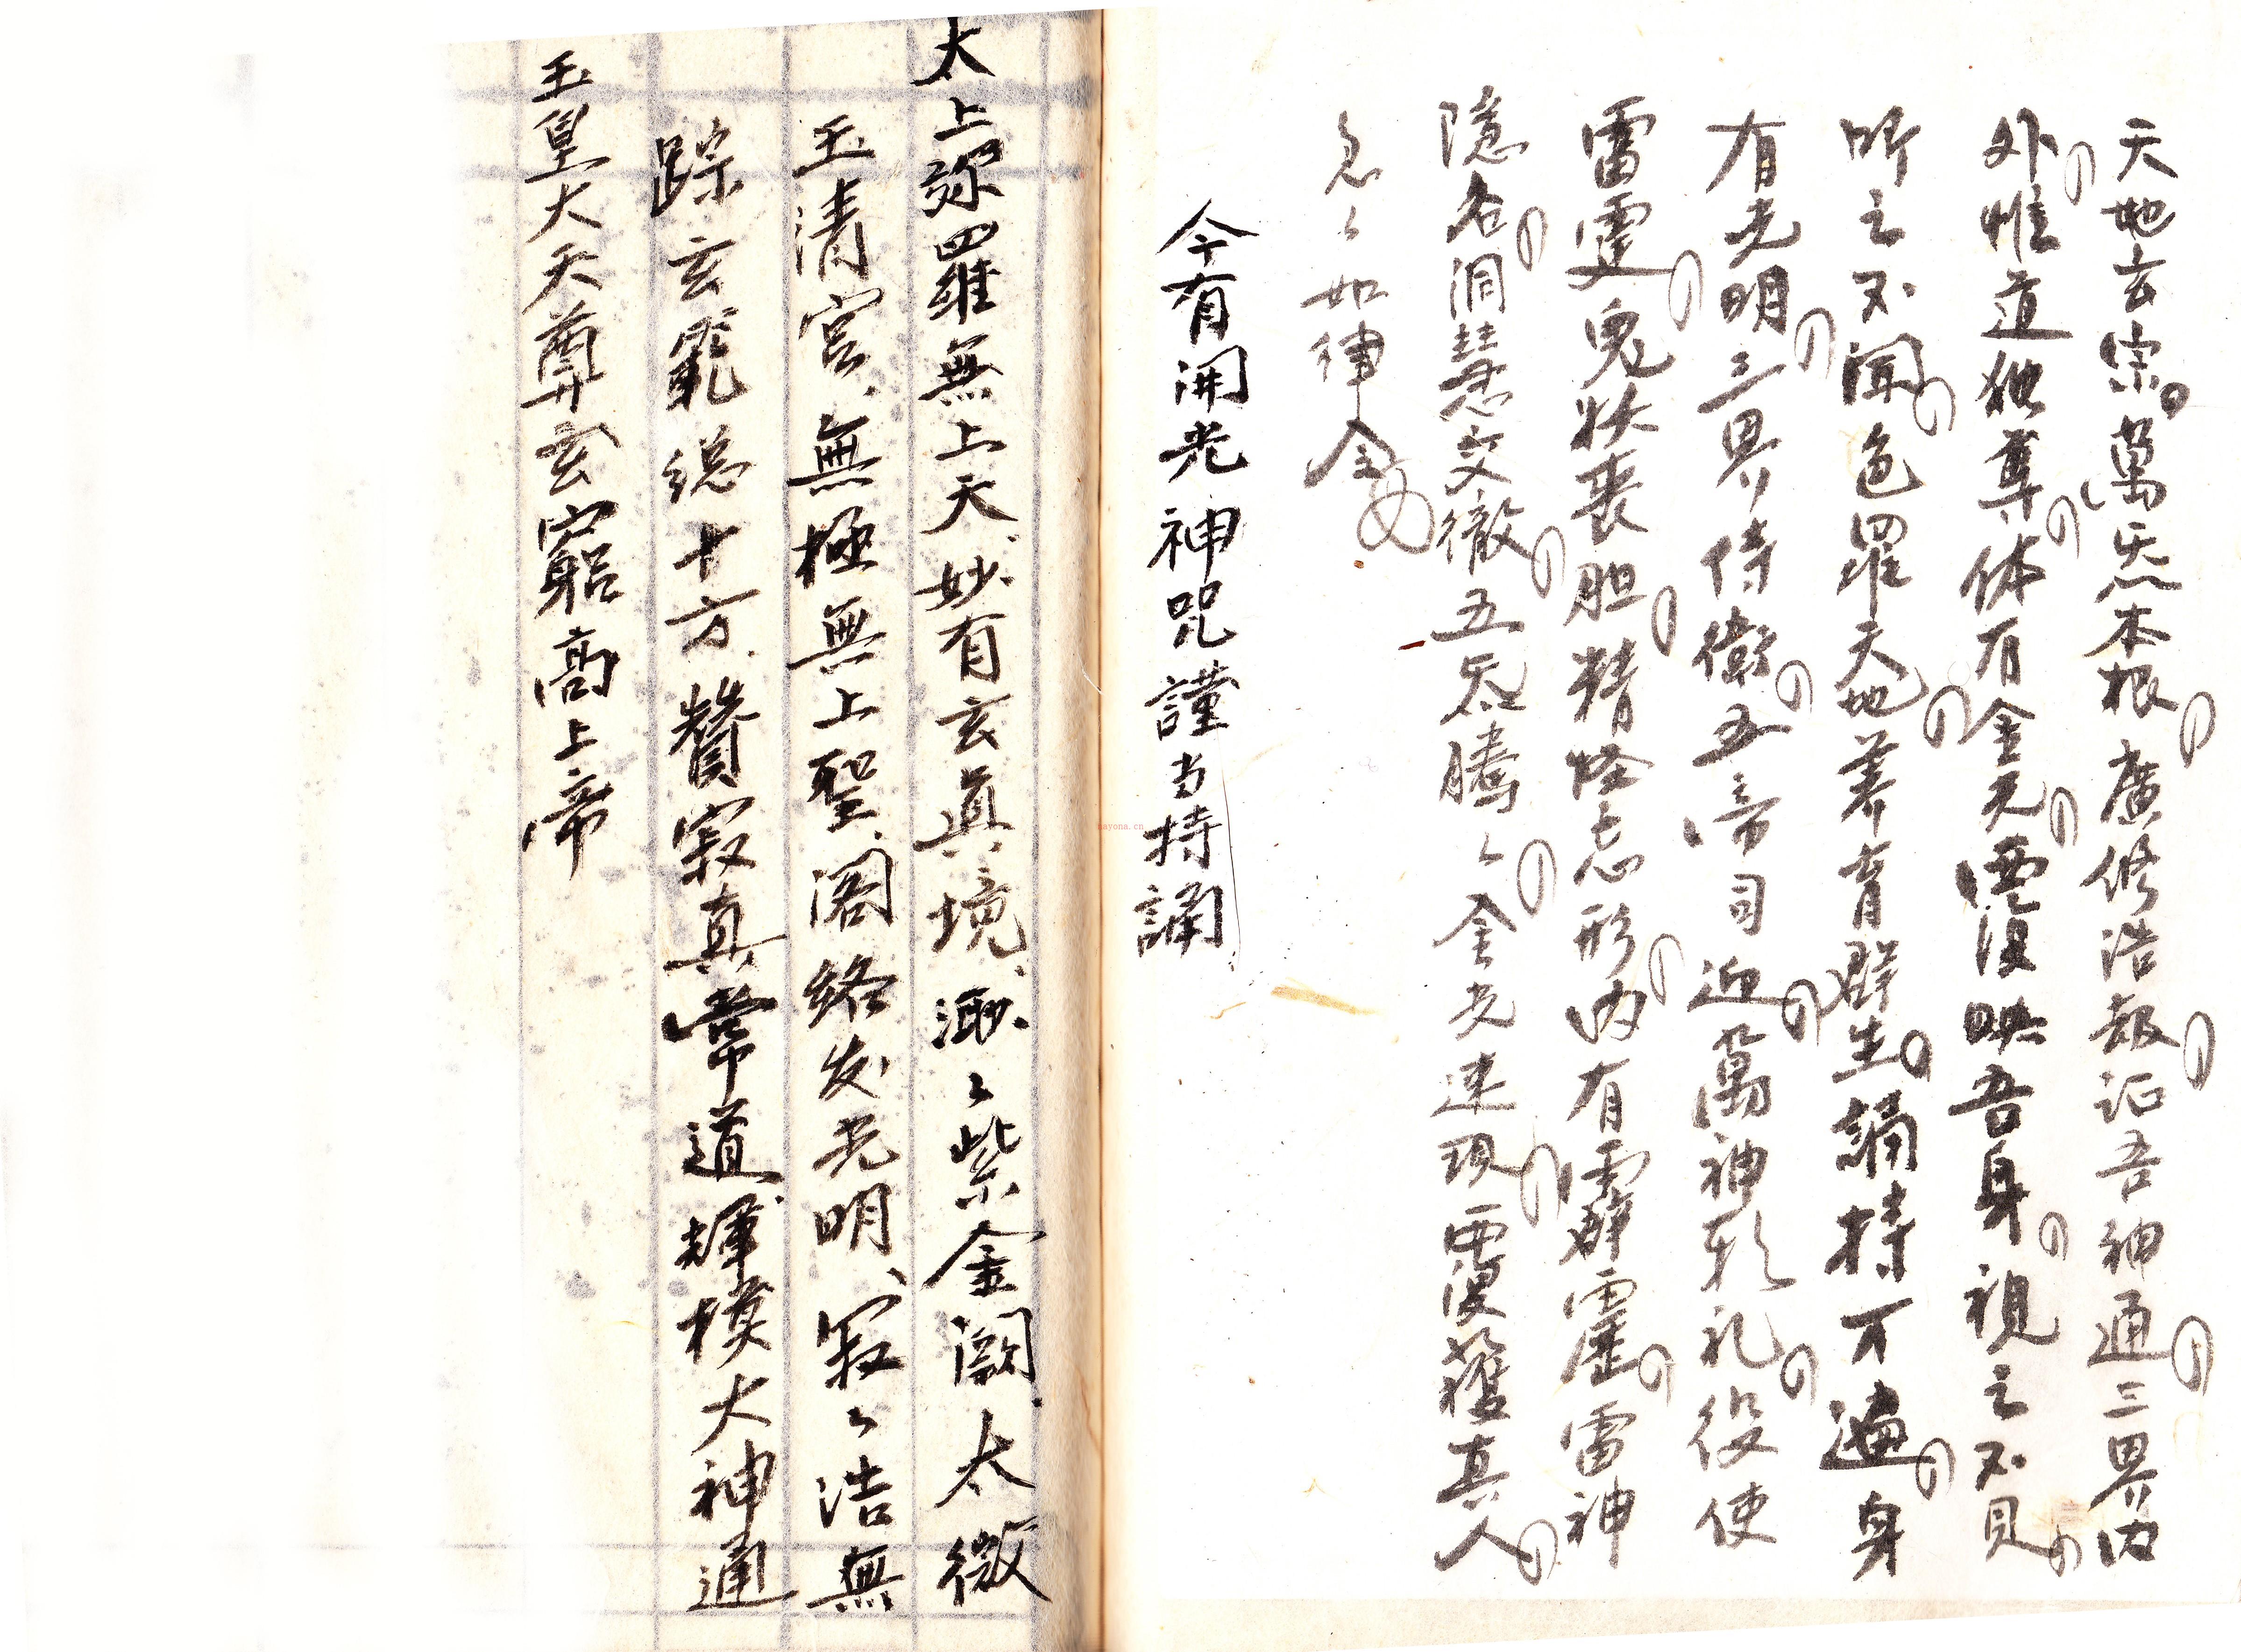 天地玄宗萬炁本根廣修浩劫证吾神通三界内
外惟道独尊体有金光覆映吾身視之不見
听之不闻色羅天地养育群生誦持万遍身
有光明三界侍衛五帝司迎萬神朝礼役使
雷霆鬼妖喪胆精怪忘形内有霹靂雷神
隱名洞慧交徹五炁腾〻金光速现覆護真人
急〻如律令
今有開光神咒謹当持誦
太上弥羅無上天妙有玄真境渺〻紫金闕太微
玉清宮無極無上聖阁络发光明寂〻浩無
踪玄範總十方贊寂真常道輝模大神通
玉皇大天尊玄窮高上帝
nayona.cn